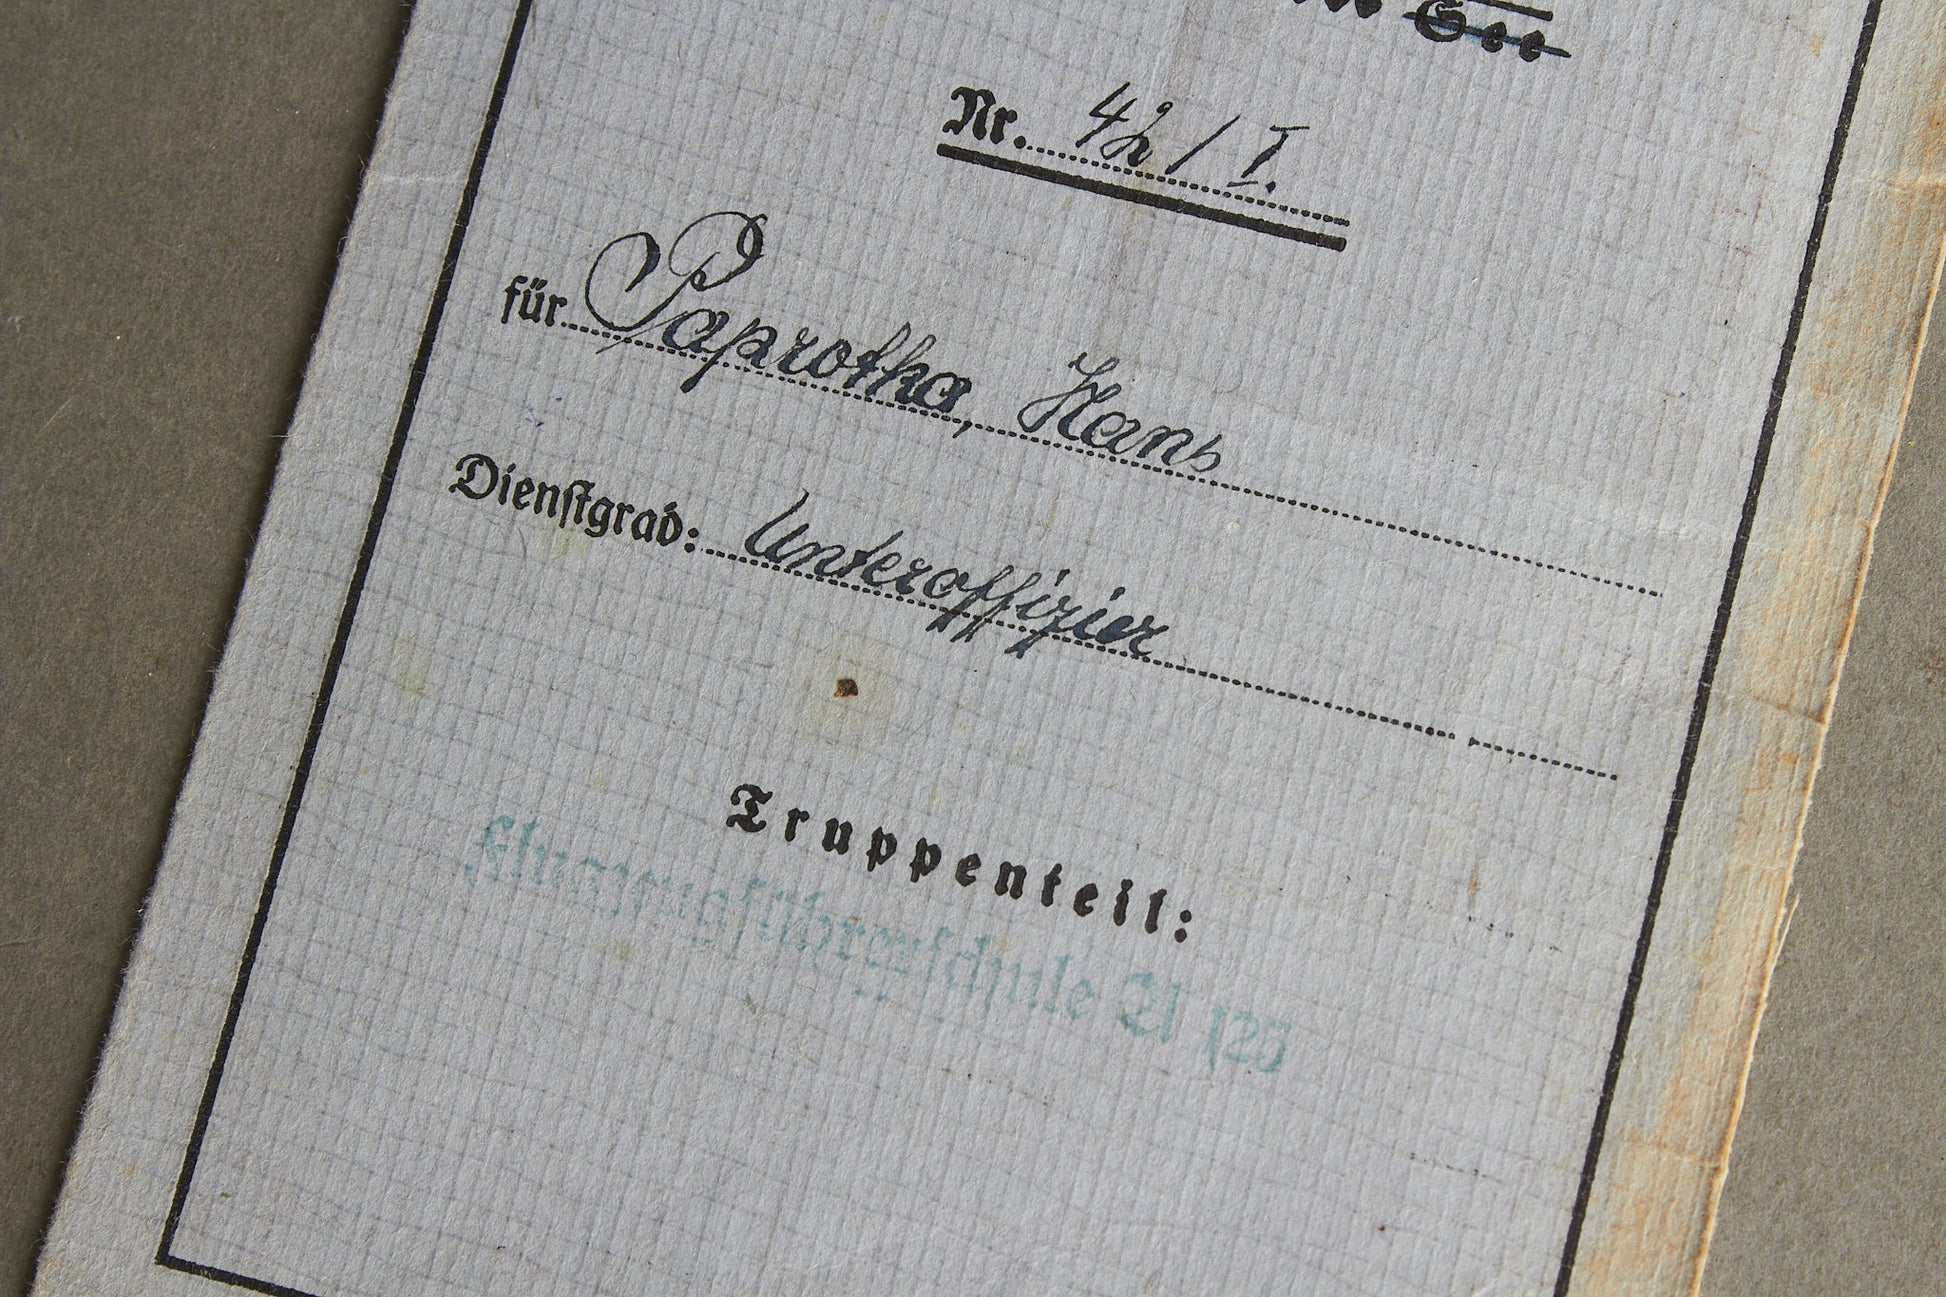 See
Nr. 42/I.
für Paprotka, Hans
Dienstgrad: Unteroffizier
Truppenteil:
Flugzeugführerschule A/125